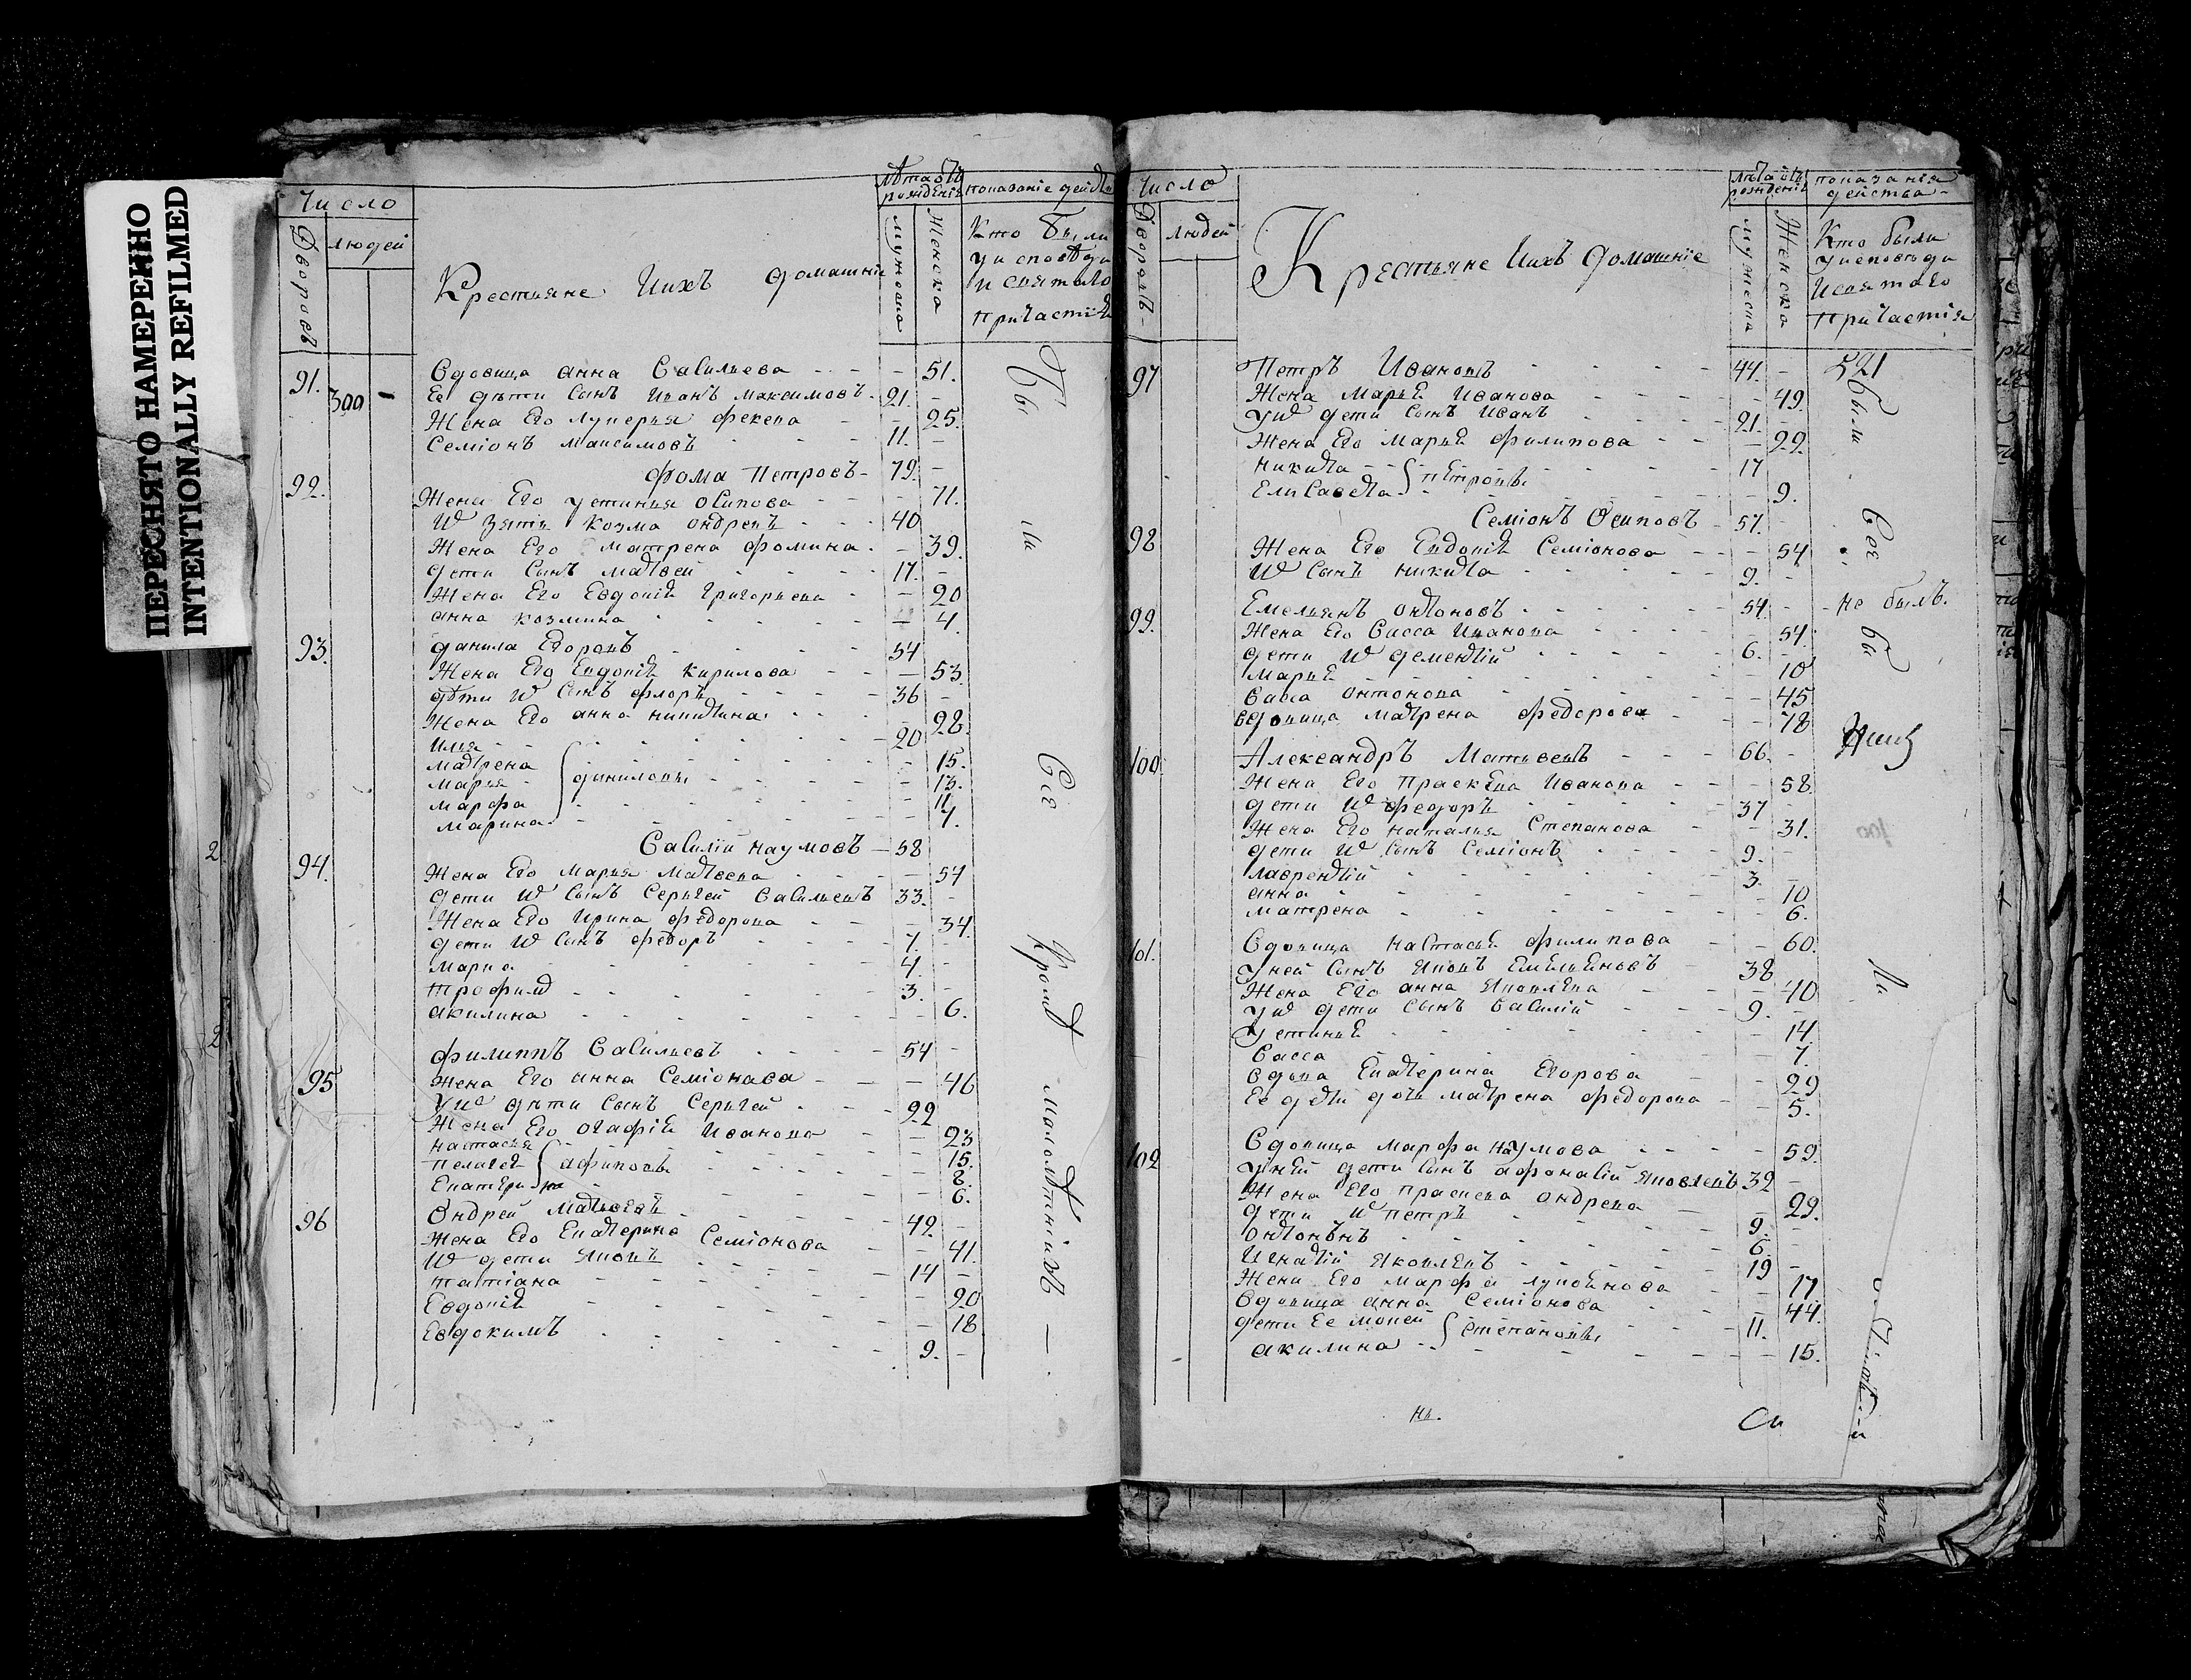 ПЕРЕСНЯТО НАМЕРЕННО
INTENTIONALLY REFILMED
Число
Дворовъ
людей
Крестьяне Иихъ домашніе
лѣта отъ рожденія
мужеска
Женска
показаніе действ
Кто были
уисповѣди
и святаго
Причастія
91. Вдовица анна Василиева 51.
300
Ее дѣти Сынъ Иванъ максимовъ 21.
Жена Его лукерья фекева 25.
Семіонъ максимовъ 11.
92. фома Петровъ 79.
Жена Его устинья осипова 71.
W Зять козма ондревъ 40
Жена Его матрена фомина 39.
дети Сынъ матвей 17.
Жена Его Евдокія григорьева 20
анна козмина 4.
93. данила Егоровъ 54
Жена Его Евдокія кирилова 53.
дѣти W Сынъ флоръ 36
Жена Его анна никитина 28.
Илья 20
матрена 15.
марья даниловы 13.
марфа 11.
марина 4.
94. Василій наумовъ 58
Жена Его марья матвева 54
дети W Сынъ Сергей Василиевъ 33.
Жена Его Ирина федорова 34.
дети W Сынъ федоръ 7.
марко 4.
трофимъ 3.
акилина 6.
95 филиппъ Василиевъ 54
Жена Его анна Семіонова 46
У W дѣти Сынъ Сергей 22
Жена Его огафія Иванова 23
настасья 15.
пелагея 8.
Екатерина 6.
96 Ондрей матвевъ 42.
Жена Его Екатерина Семіонова 41.
W дети Яковъ 14
татіана 20
Евдокія 18
Евдокимъ 9.
Бы
ли
Всѣ
Кромѣ
малолѣтнихъ
Число
Дворовъ
людей
Крестьяне Иихъ домашніе
лѣта отъ рожденія
мужеска
Женска
показанія действа
Кто были
уисповѣди
и святаго
Причастія
97 Петръ Ивановъ 44.
521
Жена марья Иванова 49.
У W дети Сынъ Иванъ 21.
Жена Его марья филипова 22.
никита Петровы 17
Елисавета 9.
98 Семіонъ Осиповъ 57.
Жена Его Евдокія Семіонова 54
W Сынъ никита 9.
99. Емельянъ онтоновъ 54. не былъ.
Жена Его Васса Иванова 54.
дети W дементій 6.
марья 10
Васса онтонова 45
вдовица матрена федорова 78
100. Александръ Матвеевъ 66.
Жена Его Праскева Иванова 58.
дети W федоръ 37
Жена Его наталья Степанова 31.
дети W Сынъ Семіонъ 9.
лаврентій 3.
анна 10
матрена 6.
101. Вдовица настасья филипова 60.
У ней Сынъ Яковъ Емельяновъ 38
Жена Его анна Яковлева 40
У W дети Сынъ Василій 9.
Устинья 14
Васса 7.
Вдова Екатерина Егорова 29
Ее дети дочь матрена федорова 5.
102 Вдовица марфа наумова 59.
У ней дети Сынъ афонасій Яковлевъ 32
Жена Его праскева ондрева 29.
дети W петръ 9.
онтонъ 6.
Игнатій Яковлевъ 19
Жена Его марфа лукоянова 17
Вдовица анна Семіонова 44.
дети Ее мокей Степановы 11.
акилина 15.
Были
Всѣ
бы
ли